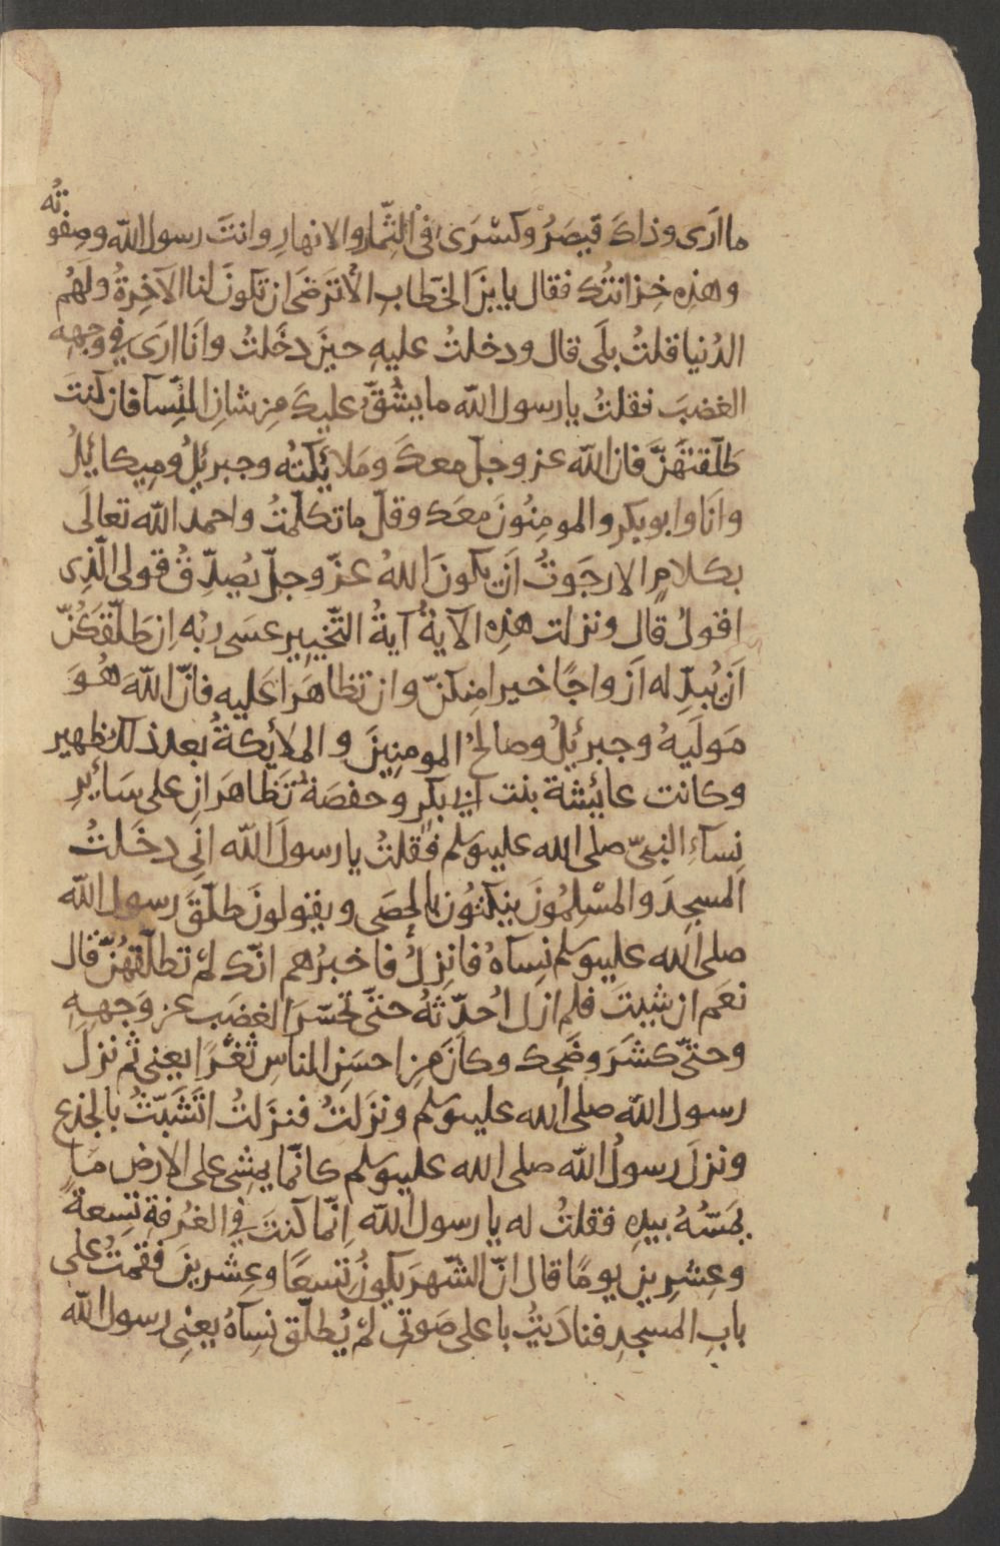 ما ارَى وذاكَ قيصَرُ وكِسْرَى في الثِّمار والانهارِ وانتَ رسول الله وصِفوتُه
وهذِه خِزانتُك فقال يا بنَ الخطّابِ الا ترَضَى ان تكونَ لنا الآخِرةُ ولهُم
الدُنيا قلتُ بلَى قال ودخلتُ عليهِ حينَ دخَلتُ وانَا ارَى في وجهِه
الغضبَ فقلتُ يا رسول الله ما يشُقُّ عليكَ مِن شانِ النِّسآ فان كنتَ
طلّقتَهُنَّ فان الله عز وجلّ معكَ ومَلائِكتُه وجبرئيلُ ومِيكائيلُ
وانَا وابو بكر والمومِنُونَ معَك وقلّ ما تكلّمتُ واحمد الله تعالَى
بكلامٍ الا رجَوتُ ان يكونَ اللهُ عزّ وجلّ يُصدِّقُ قولى الّذِى
اقولُ قال ونزلت هذِه الآيةُ آيةُ التّخييرِ عسَى ربُه اِن طلّقكُنّ
اَن يُبدِّله اَزواجًا خيرا مِنكنّ وان تظاهَرا عَليه فانّ اللهَ هُوَ
مَولَيهُ وجبرئيلُ وصالحُ المومِنِينَ والملائِكةُ بعد ذلك ظهير
وكانت عائِشة بنت ابي بكرٍ وحفصَة تَظاهَرانِ على سَائِر
نِسآءِ النبىّ صلى الله عليه وسلم فقلتُ يا رسولَ الله انِّى دخَلتُ
المسجِدَ والمسْلِمُونَ ينكتُون بالحصَى ويقولونَ طلّقَ رسول الله
صلى الله عليه وسلم نِسآهُ فانزِلُ فاخبرُهم انّك لم تطلّقهُنّ قال
نعَم ان شِيتَ فلم ازل اُحدّثهُ حتّى تحَسّرَ الغضَب عن وَجهِهِ
وحتّى كشَرَ وضَحِك وكانَ مِن احسَنِ الناسِ ثغْرًا يعنى ثم نزلَ
رسول الله صلى الله عليه وسلم ونزَلتُ فنزَلتُ اتشَبّثُ بالجِذعِ
ونزلَ رسولُ الله صلى الله عليه وسلم كانّما يمشِى على الارض ما
يمَسّهُ بيدِه فقلتُ له يا رسول الله اِنّما كنتَ في الغُرفةِ تِسعةً
وعِشرِين يومًا قال انّ الشّهرَ يكونُ تِسعًا وعِشرينَ فقمتُ على
بابِ المسجِدِ فنادَيتُ باعلى صَوتِى لم يُطلّق نِسآهُ يعنِى رسول الله